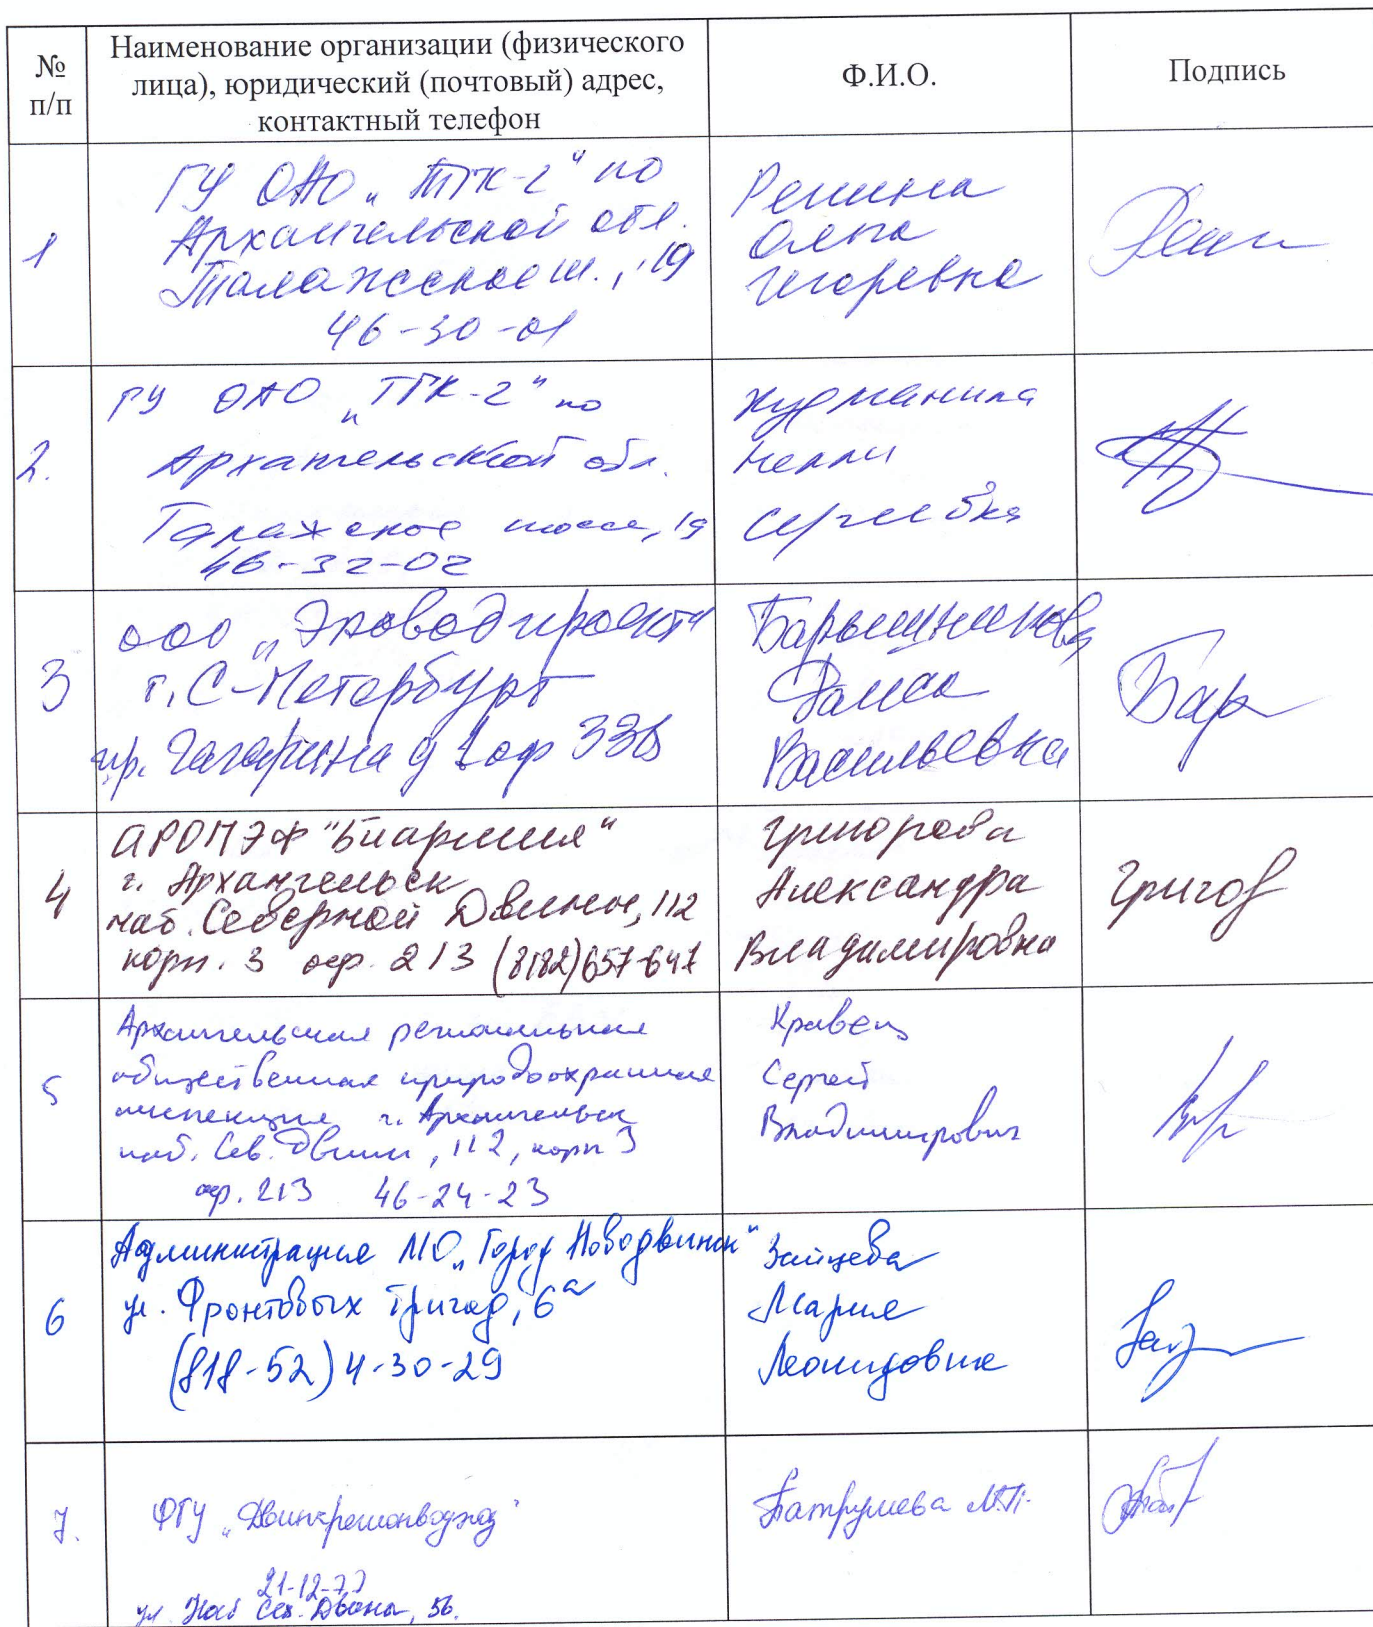 № п/п
Наименование организации (физического лица), юридический (почтовый) адрес, контактный телефон
Ф.И.О.
Подпись
1
ГУ ОАО „ТГК-2" по
Архангельской обл.
Талажское ш., 19
46-30-01
Ренина
Ольга
Игоревна
2.
ГУ ОАО „ТГК-2" по
Архангельской обл.
Талажское шоссе, 19
46-32-02
Нелли
Сергеевна
3
ООО „Эководпроект"
г. С-Петербург
пр. Гагарина д 1 оф
Барышникова
Раиса
Васильевна
Бар
4
АРОПЭФ "Биармия"
г. Архангельск
наб. Северной Двины, 112
корп. 3 оф. 213 (8182)657-647
Григорова
Александра
Владимировна
Григор
5
Архангельская региональная
общественная природоохранная
инспекция г. Архангельск
наб. Сев. Двины, 112, корп 3
оф. 213 46-24-23
Кравец
Сергей
Владимирович
6
Администрация МО „Город Новодвинск"
ул. Фронтовых бригад, 6а
(818-52) 4-30-29
Зайцева
Мария
Леонидовна
7.
ФГУ „Двинарегионводхоз"
21-12-77
ул. Наб Сев. Двины, 56.
Патрушева М.П.